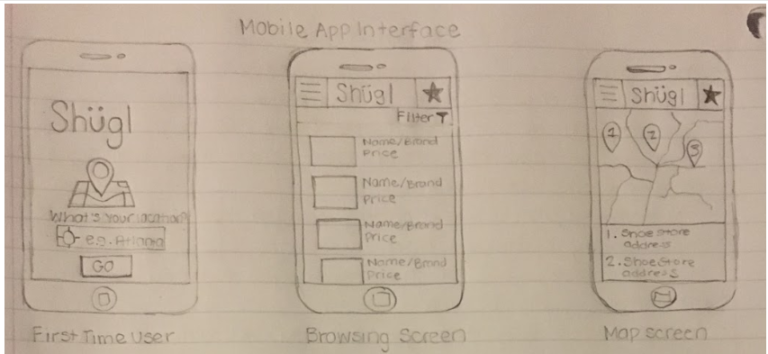 Mobile App Interface
Shügl
What's your location?
e.g. Atlanta
GO
First Time User
Shügl
Filter
Name/Brand
Price
Name/Brand
Price
Name/Brand
Price
Name/Brand
Price
Browsing Screen
Shügl
1
2
3
1. Shoe Store
address
2. Shoe Store
address
Map screen